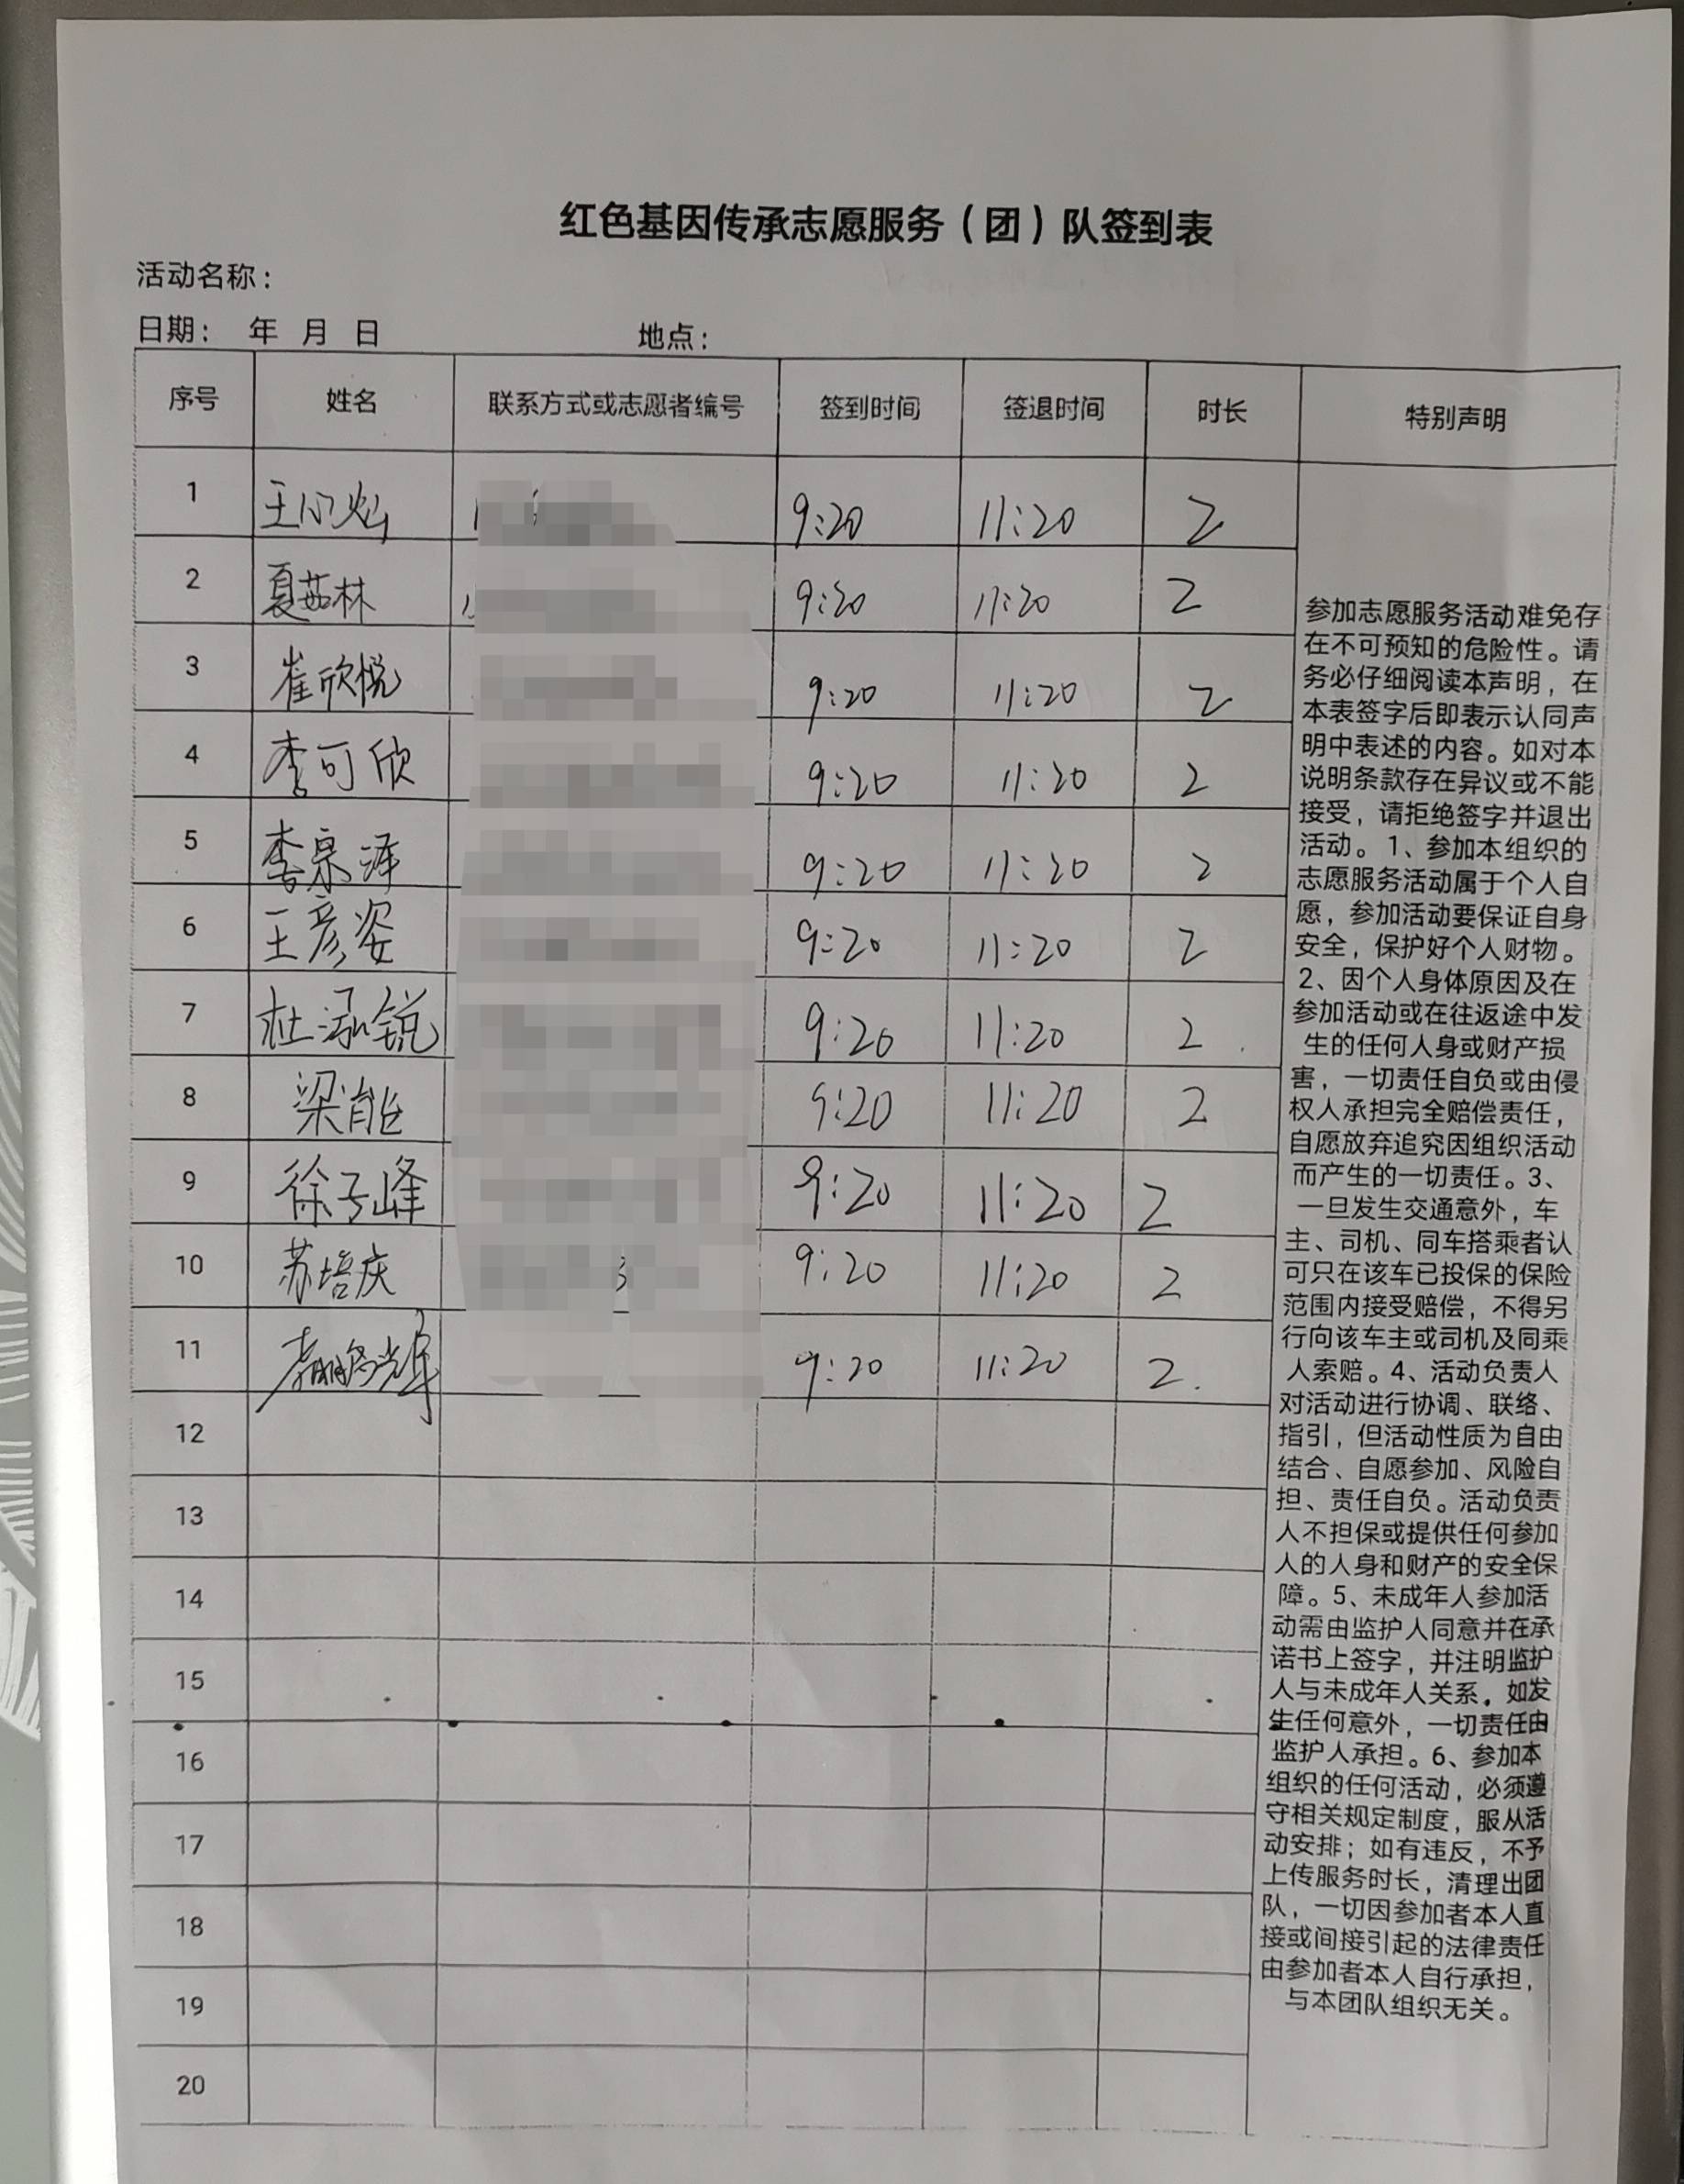 红色基因传承志愿服务（团）队签到表
活动名称：
日期： 年 月 日 地点：
序号 姓名 联系方式或志愿者编号 签到时间 签退时间 时长 特别声明
1 9:20 11:20 2
2 夏茹林 9:20 11:20 2
3 崔欣悦 9:20 11:20 2
4 李可欣 9:20 11:20 2
5 李宗泽 9:20 11:20 2
6 王彦姿 9:20 11:20 2
7 杜泓锐 9:20 11:20 2
8 梁肖能 9:20 11:20 2
9 徐子峰 9:20 11:20 2
10 苏培庆 9:20 11:20 2
11 9:20 11:20 2
12
13
14
15
16
17
18
19
20
参加志愿服务活动难免存
在不可预知的危险性。请
务必仔细阅读本声明，在
本表签字后即表示认同声
明中表述的内容。如对本
说明条款存在异议或不能
接受，请拒绝签字并退出
活动。1、参加本组织的
志愿服务活动属于个人自
愿，参加活动要保证自身
安全，保护好个人财物。
2、因个人身体原因及在
参加活动或在往返途中发
生的任何人身或财产损
害，一切责任自负或由侵
权人承担完全赔偿责任，
自愿放弃追究因组织活动
而产生的一切责任。3、
一旦发生交通意外，车
主、司机、同车搭乘者认
可只在该车已投保的保险
范围内接受赔偿，不得另
行向该车主或司机及同乘
人索赔。4、活动负责人
对活动进行协调、联络、
指引，但活动性质为自由
结合、自愿参加、风险自
担、责任自负。活动负责
人不担保或提供任何参加
人的人身和财产的安全保
障。5、未成年人参加活
动需由监护人同意并在承
诺书上签字，并注明监护
人与未成年人关系。如发
生任何意外，一切责任由
监护人承担。6、参加本
组织的任何活动，必须遵
守相关规定制度，服从活
动安排；如有违反，不予
上传服务时长，清理出团
队，一切因参加者本人直
接或间接引起的法律责任
由参加者本人自行承担，
与本团队组织无关。